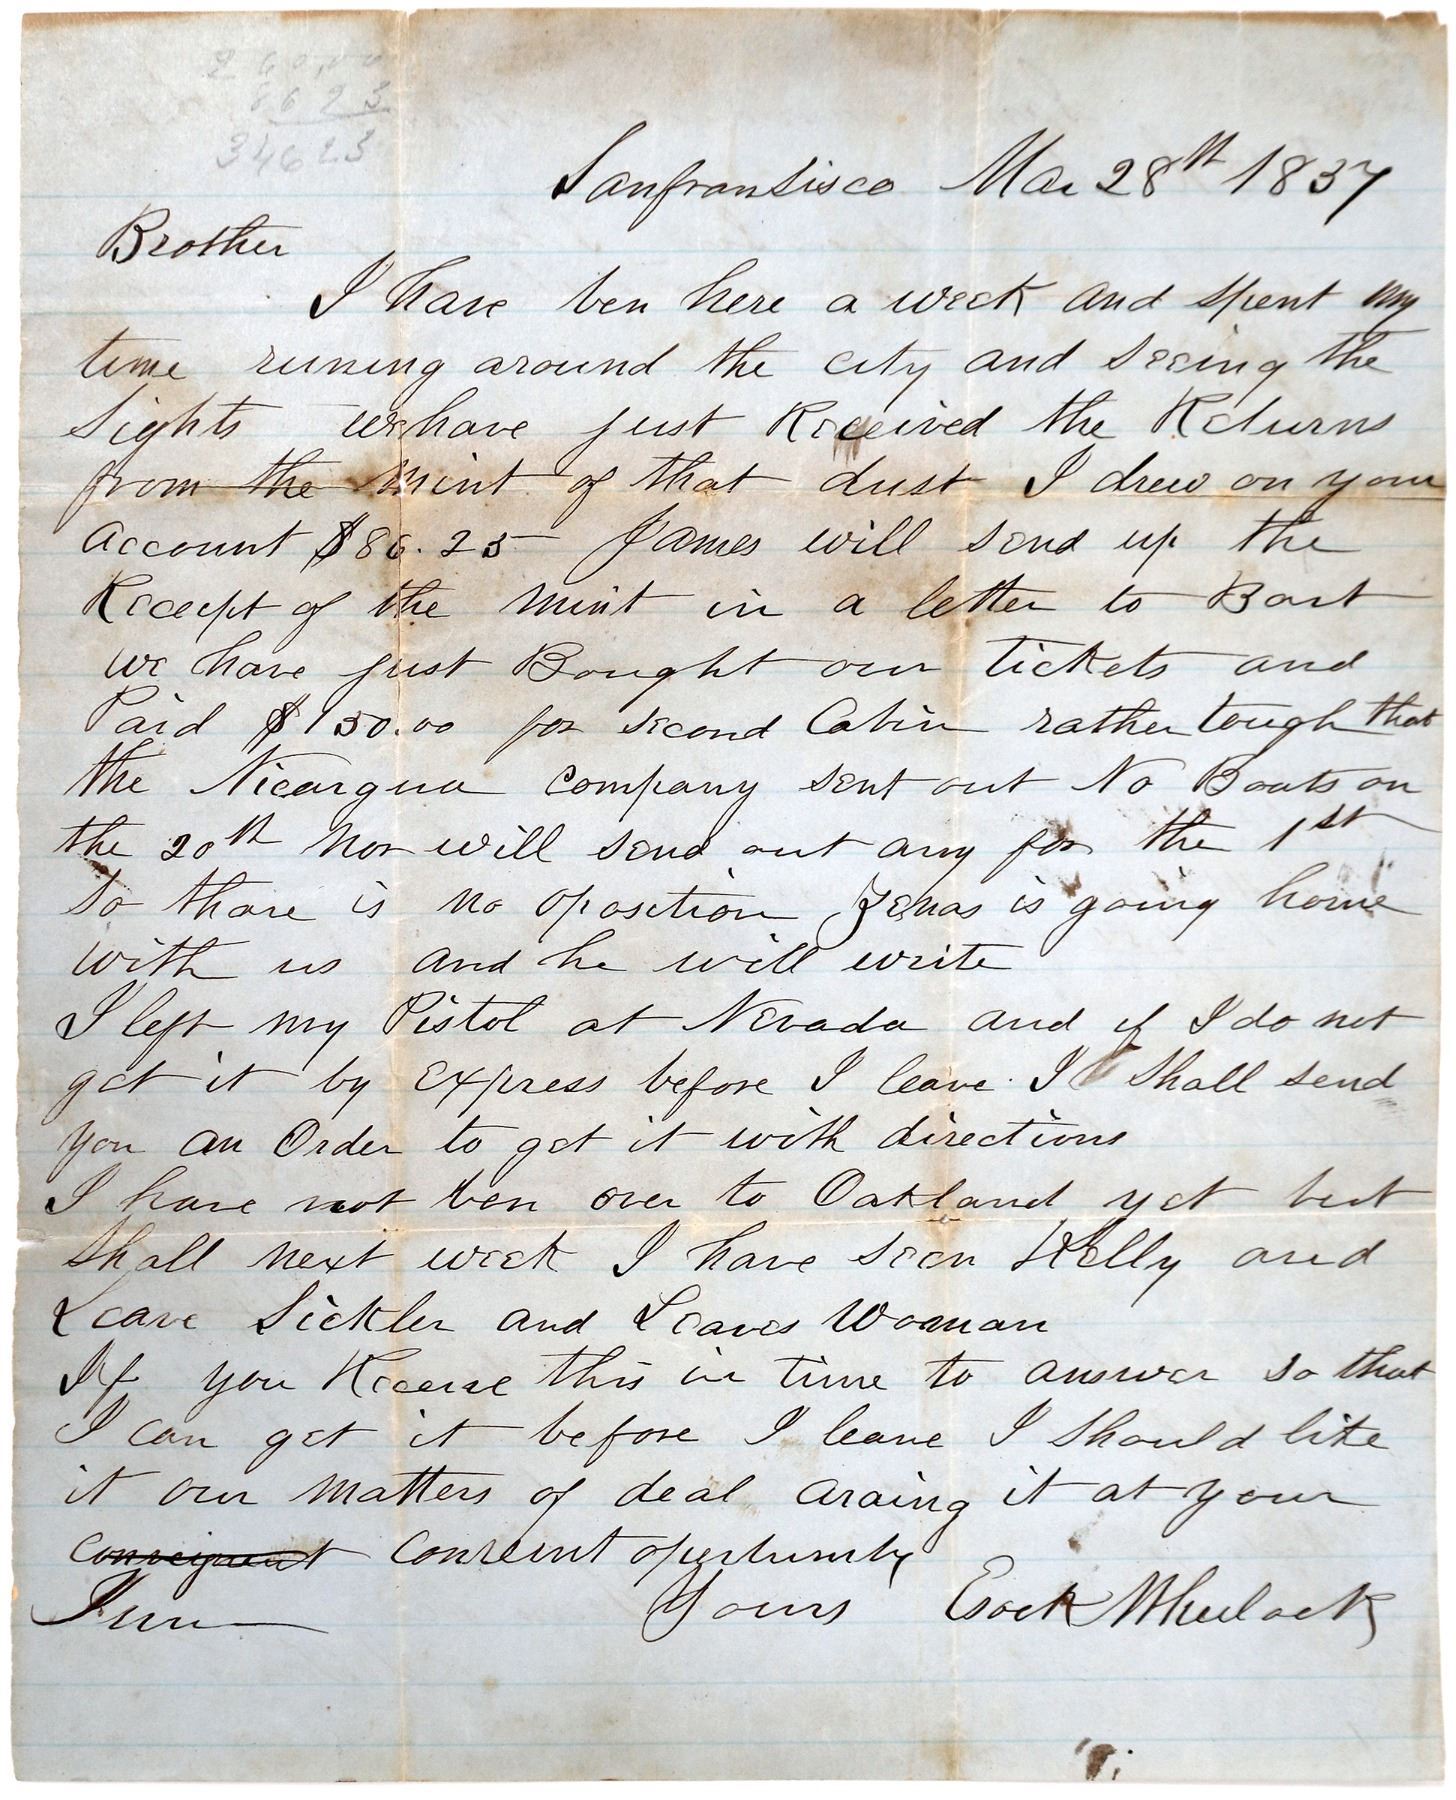 260,00
8623
34623
Sanfransisco Mar 28th 1857
Brother
I have ben here a week and spent my
time runing around the city and seeing the
Sights we have just Received the Returns
from the Mint of that dust I drew on your
account $86.23 James will send up the
Receipt of the Mint in a letter to Bart
we have just Bought our tickets and
Paid $150.00 for second Cabin rather tough that
the Nicargua company sent out No Boats on
the 20th nor will send out any for the 1st
So thare is no oposition Zenas is going home
with us and he will write
I left my Pistol at Nevada and if I do not
get it by express before I leave I Shall send
you an Order to get it with directions
I have not ben over to Oakland yet but
Shall next week I have seen Kelly and
Leave Sickler and Leaves Woman
If you Receive this in time to answer so that
I can get it before I leave I should like
it our matters of deal araing it at your
convient opertunity
Yours Esock Wheelock